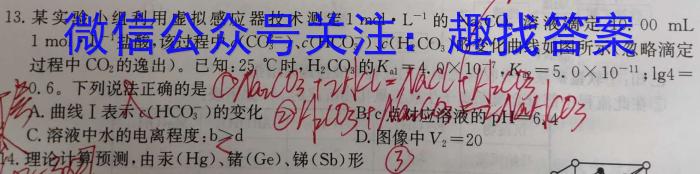 13. 某实验小组利用虚拟感应器技术测定 1 mol·L⁻¹ 的 溶液滴定 00 mL
1 mol 盐酸,该过程中 c(CO c(H₂CO₃) 变化曲线如图所示(忽略滴定
过程中 CO₂ 的逸出)。已知:25 ℃时,H₂CO₃ 的 Kₐ₁=4.0×10⁻⁷, Kₐ₂=5.0×10⁻¹¹;lg4=
0.6。下列说法正确的是 ①Na₂CO₃+2HCl=NaCl+H₂CO₃
A. 曲线Ⅰ表示 c(HCO₃⁻)的变化 B. c 点对应溶液的 pH=6.4
②H₂CO₃+Na₂CO₃=
C. 溶液中水的电离程度:b>d D. 图像中 V₂=20
14. 理论计算预测,由汞(Hg)、锗(Ge)、锑(Sb)形 ③
微信公众号关注:趣找答案